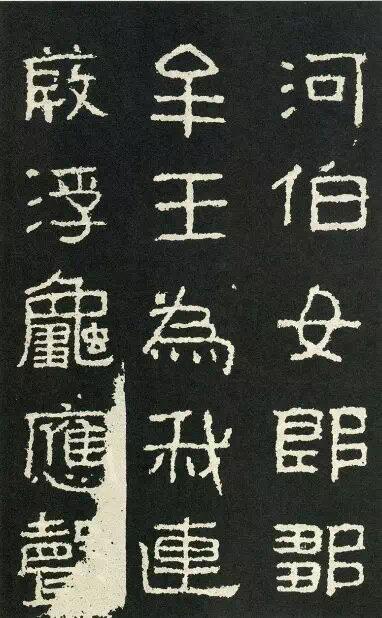 河伯女郎鄒
牟王為我連
葭浮龜應聲